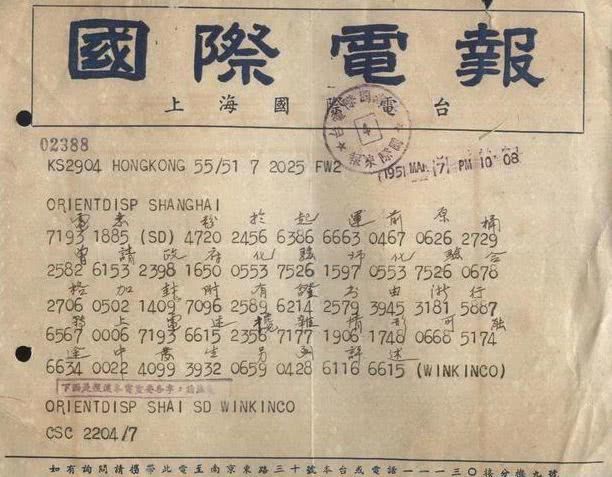 國際電報
上海國際電台
02388
KS2904 HONGKONG 55/51 7 2025 FW2
1951 MAR 7 PM 10 08
ORIENTDISP SHANGHAI
電悉 於起運前原桶
7193 1885 (SD) 4720 2456 6386 6663 0467 0626 2729
請政府化驗 化驗合
2582 6153 2398 1650 0553 7526 1597 0553 7526 0678
格加封附有證書由浙行
2706 0502 1409 7096 2589 6214 2579 3945 3181 5887
務上電述 雜情形可融
6567 0006 7193 6615 2356 7177 1906 1748 0668 5174
途中發生另函詳述
6634 0022 4099 3932 0659 0428 6116 6615 (WINKINCO)
ORIENTDISP SHAI SD WINKINCO
CSC 2204/7
如有詢問請攜帶此電至南京東路三十號本台或電話一一一三〇接分機九號